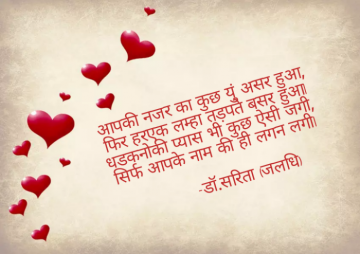 आपकी नजर का कुछ युं असर हुआ,
फिर हरएक लम्हा तड़पते बसर हुआ।
धडकनोकी प्यास भी कुछ ऐसी जगी,
सिर्फ आपके नाम की ही लगन लगी।
-डॉ.सरिता (जलधि)